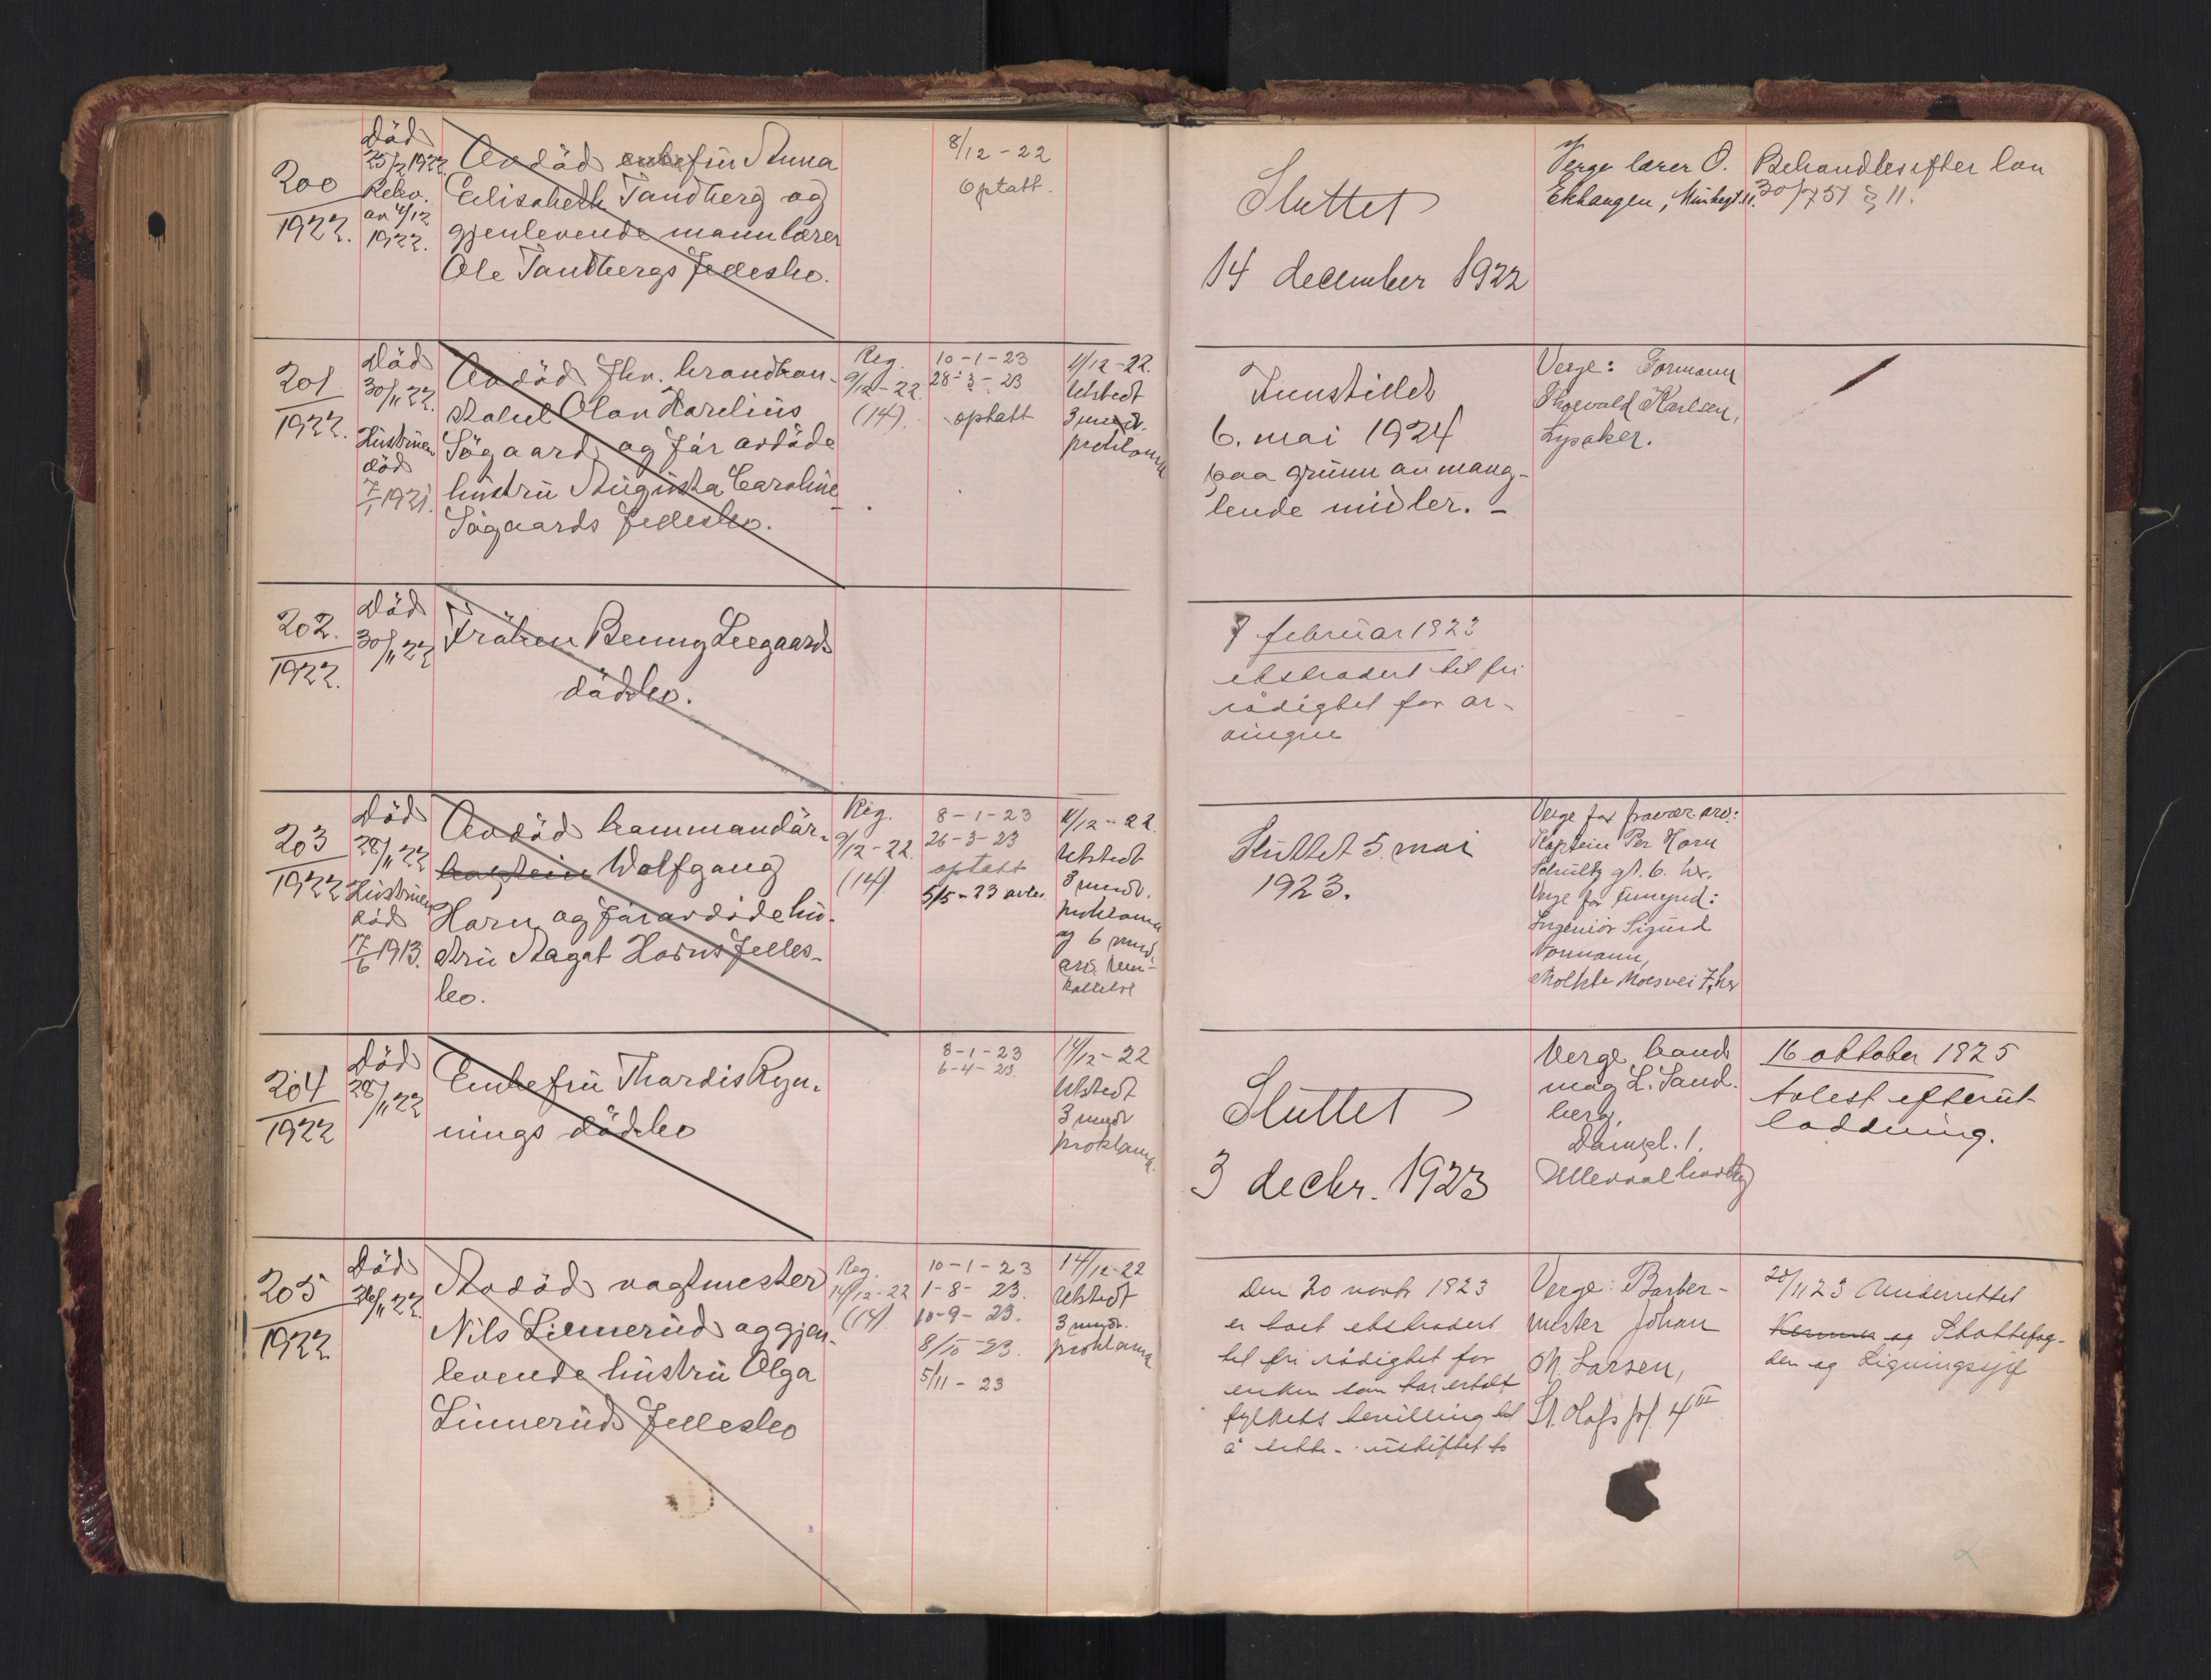 200
1922.
Död
25/2 1922.
Rekv.
av 4/12
1922.
Avdöd enkefru Anna
Elisabeth Tandberg og
gjenlevende mann lærer
Ole Tandbergs fellesbo.
8/12 - 22
Optatt.
Sluttet
14 december 1922
Verge lærer O.
Ekhaugen,
Behandles efter lov
30/7 51 § 11.
201
1922.
Död
30/11 22.
Hustruen
död
7/1 1921.
Avdöd fhv. brandkon-
stabel Olav Karelius
Sögaard og før avdöde
hustru Augusta Caroline
Sögaards fellesbo.
Reg.
9/12 - 22.
(14).
10 - 1 - 23
28 - 3 - 23
optatt
11/12 - 22.
Utstedt
3 mndr.
proklama
Innstillet
6. mai 1924
paa grunn av mang-
lende midler. -
Verge: Formann
Thorvald Karlsen,
Lysaker.
202.
1922.
Död
30/11 22
Fröken Benny Leegaards
dödsbo.
7 februar 1923
ekstradert til fri
rådighet for ar-
vingen
203
1922
Död
28/11 22
Hustruen
död
17/6 1913.
Avdöd kommandör-
kaptein Wolfgang
Horn og før avdöde hu-
stru Aagat Horns felles-
bo.
Reg.
9/12 - 22.
(14)
8 - 1 - 23
26 - 3 - 23
optatt
5/5 - 23 avsl.
11/12 - 22.
Utstedt
3 mndr.
proklama
og 6 mnd.
arv. inn-
kallelse
Sluttet 5. mai
1923.
Verge for fravær. arv:
Kaptein Per Horn
Schultz gt. 6. hr.
Verge for umynd:
Ingeniör Sigurd
Normann,
Moltke Moesvei 7, hr
204
1922
Död
28/11 22
Enkefru Thordis Ryn-
nings dödsbo
8 - 1 - 23
6 - 4 - 23.
14/12 - 22
Utstedt
3 mndr
proklama.
Sluttet
3 decbr. 1923
Verge cand
mag L. Sand-
berg,
Dampl. 1.
Ullevaal haveby
16 oktober 1925
avlest efterut-
lodning.
205
1922
Död
26/11 22.
Avdöd vagtmester
Nils Linnerud og gjen-
levende hustru Olga
Linneruds fellesbo
Reg.
14/12 - 22
(14)
10 - 1 - 23
1 - 8 - 23.
10 - 9 - 23.
8/10 - 23.
5/11 - 23
14/12 - 22
Utstedt
3 mndr.
proklama
Den 20 novbr 1923
er boet ekstradert
til fri rådighet for
enken som har erholdt
fylkets bevilling til
å sitte i uskiftet bo
Verge: Barber-
mester Johan
M. Larsen,
St. Olafs pl. 4 III
20/11 23 Underrettet
Skattefog-
den og Ligningssjef